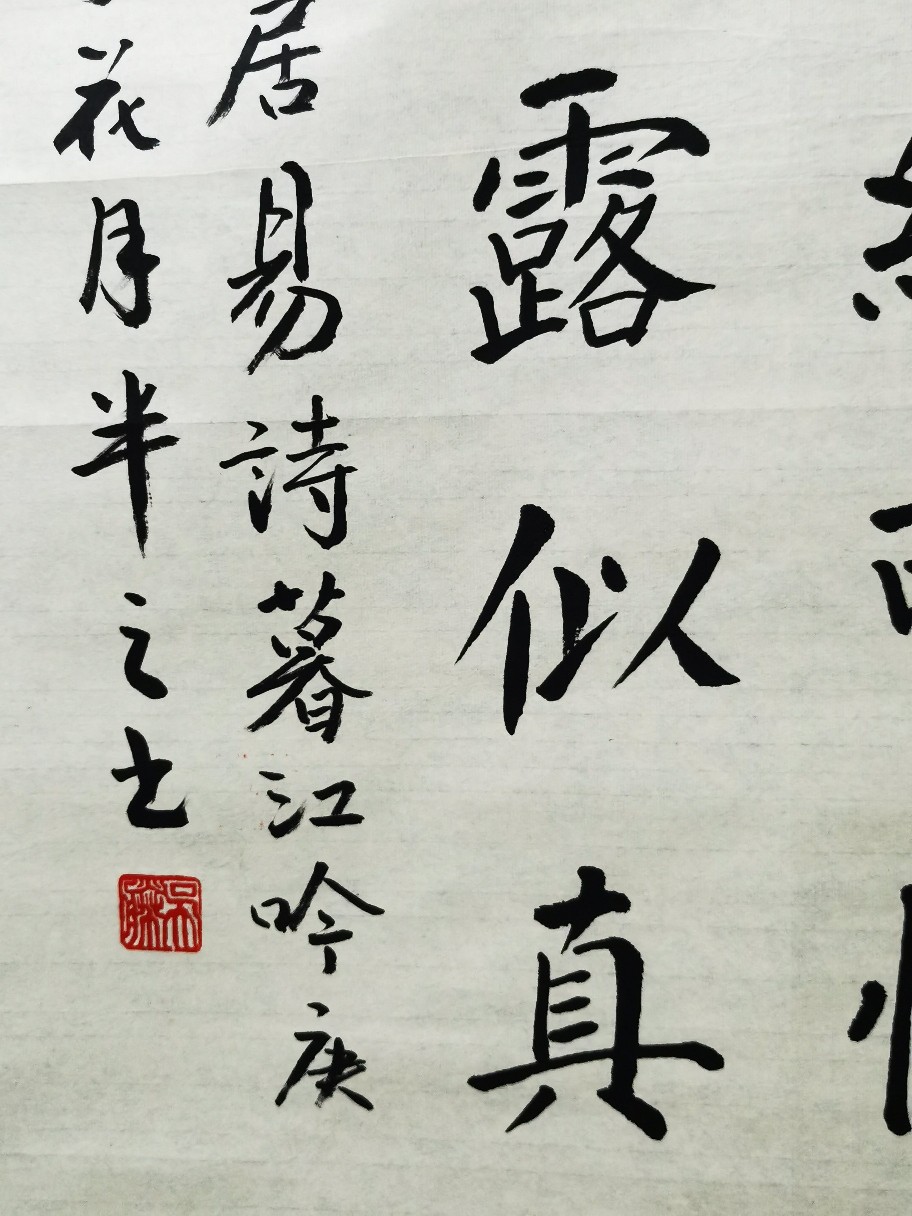 露似真
居易詩暮江吟庚
花月半之
吳